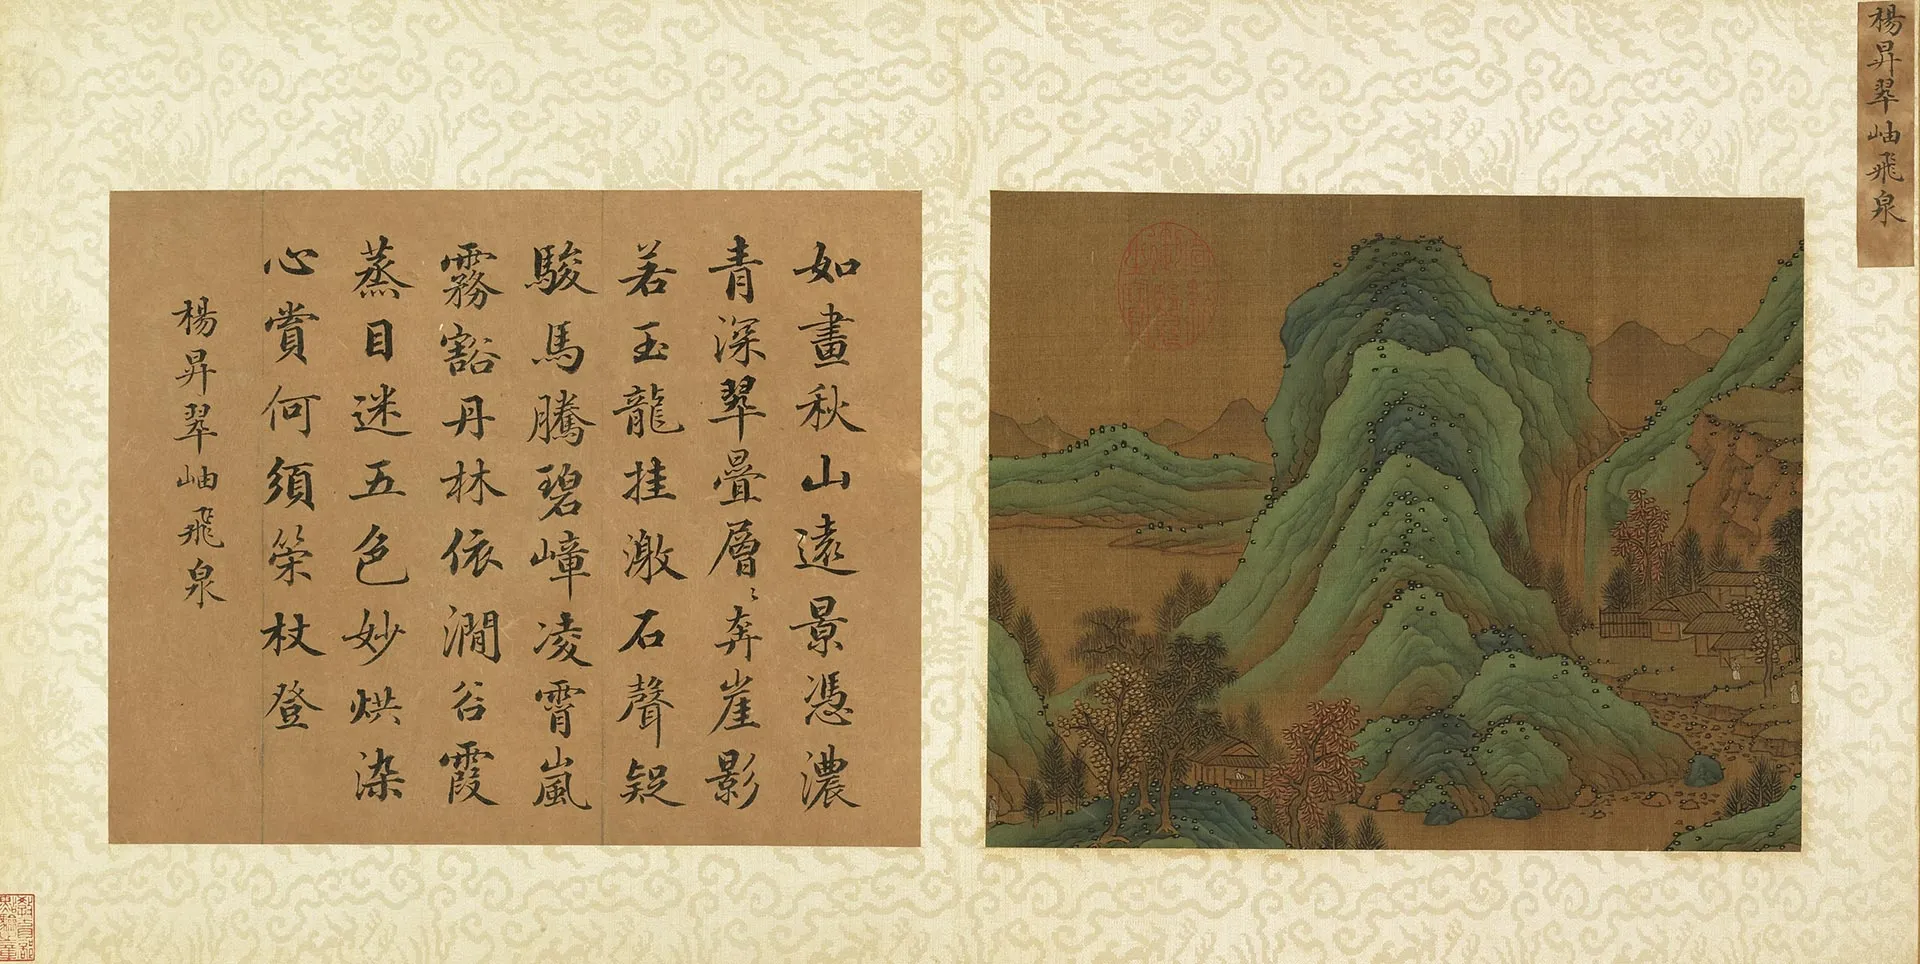 楊昇翠岫飛泉
如畫秋山遠景憑濃
青深翠疊層〻奔崖影
若玉龍挂激石聲疑
駿馬騰碧嶂凌霄嵐
霧豁丹林依澗谷霞
蒸目迷五色妙烘染
心賞何須策杖登
楊昇翠岫飛泉